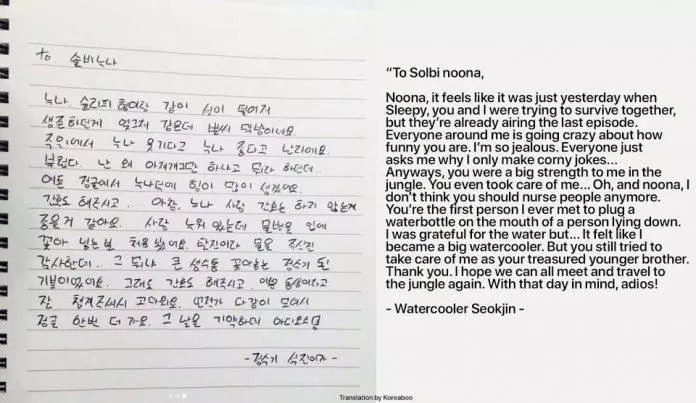 to 솔비누나
누나 슬리피 형이랑 같이 셋이 떨어져
생존하던게 엊그제 같은데 벌써 막방이네요.
주위에서 누나 웃기다고 누나 좋다고 난리예요.
부럽다. 난 왜 아재개그만 하냐고 뭐라 하던데..
여튼 정글에서 누나덕에 힘이 많이 생겼어요.
간호도 해주시고... 아참, 누나 사람 간호는 하지 않는게
좋을거 같아요. 사람 누워 있는데 물병을 입에
꽂아 넣는분 처음 봤어요. 탈진이라 물은 주신건
감사한데... 그 뭐냐 큰 생수통 꽂아놓는 정수기 된
기분이었어요. 그래도 간호도 해주시고 동생이라고
잘 챙겨주셔서 고마워요. 언젠가 다같이 모여서
정글 한번 더 가요. 그 날을 기약하며
-정수기 석진이가-
“To Solbi noona,
Noona, it feels like it was just yesterday when
Sleepy, you and I were trying to survive together,
but they're already airing the last episode.
Everyone around me is going crazy about how
funny you are. I'm so jealous. Everyone just
asks me why I only make corny jokes...
Anyways, you were a big strength to me in the
jungle. You even took care of me... Oh, and noona, I
don't think you should nurse people anymore.
You're the first person I ever met to plug a
waterbottle on the mouth of a person lying down.
I was grateful for the water but... It felt like I
became a big watercooler. But you still tried to
take care of me as your treasured younger brother.
Thank you. I hope we can all meet and travel to
the jungle again. With that day in mind, adios!
- Watercooler Seokjin -
Translation by Koreaboo